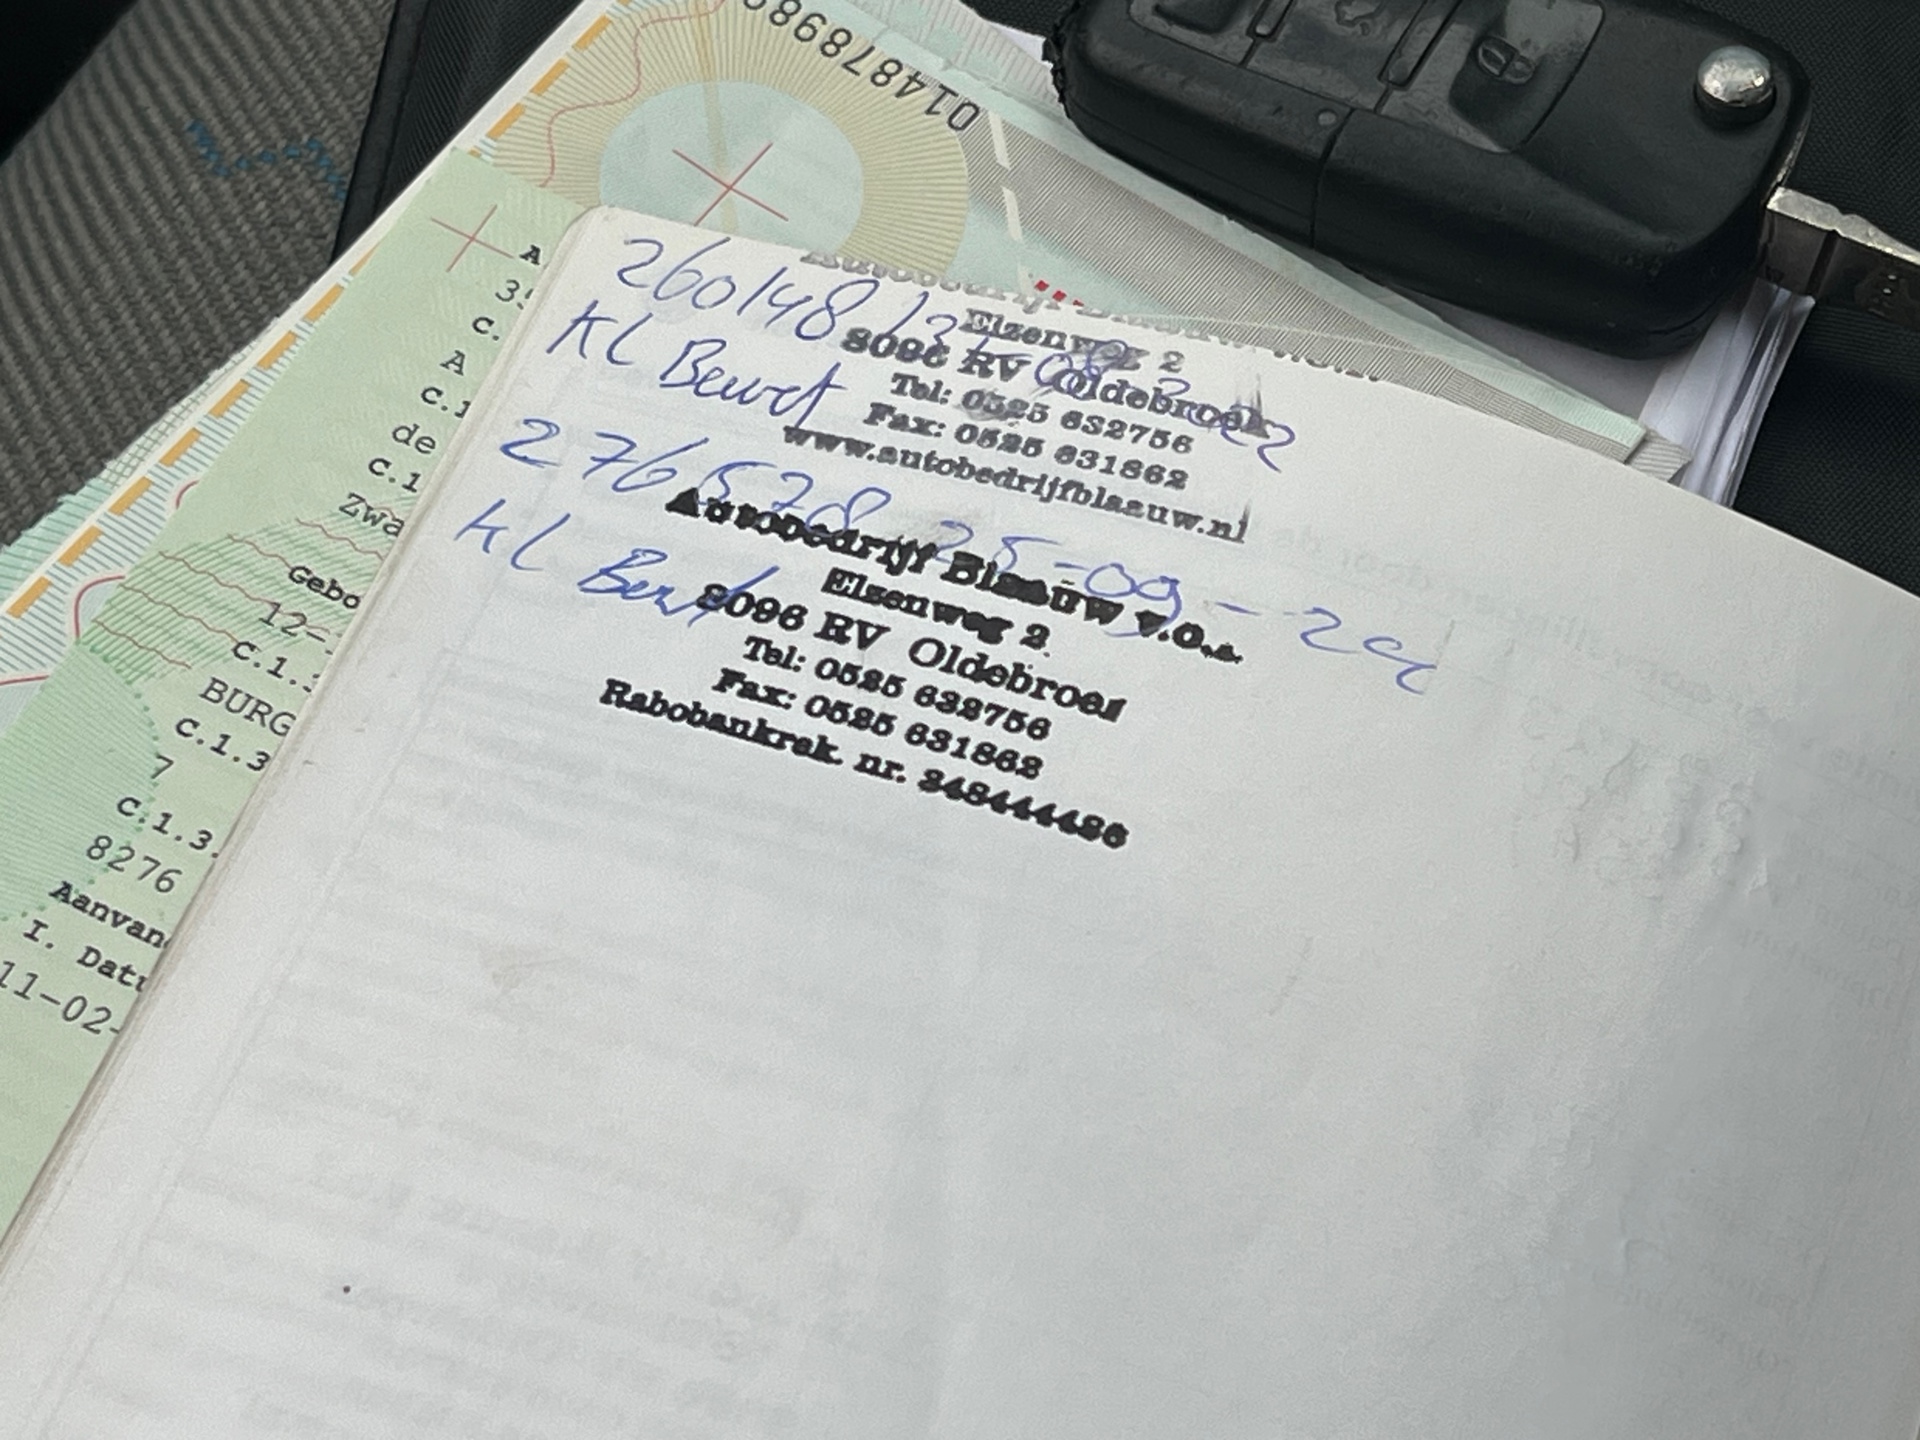 01487898
A
35
C.
A
C.1
de
C.1
Zwa
Gebo
12-
C.1.
BURG
C.1.3
7
C.1.3.
8276
Aanvan
I. Datu
11-02-
260148
Elzenweg 2
8096 RV Oldebroek
KL Beurt
Tel: 0525 632756
Fax: 0525 631862
www.autobedrijfblaauw.nl
276578 25-09-24
Autobedrijf Blaauw v.o.f.
KL Beurt
Elzenweg 2
8096 RV Oldebroek
Tel: 0525 632756
Fax: 0525 631862
Rabobankrek. nr.